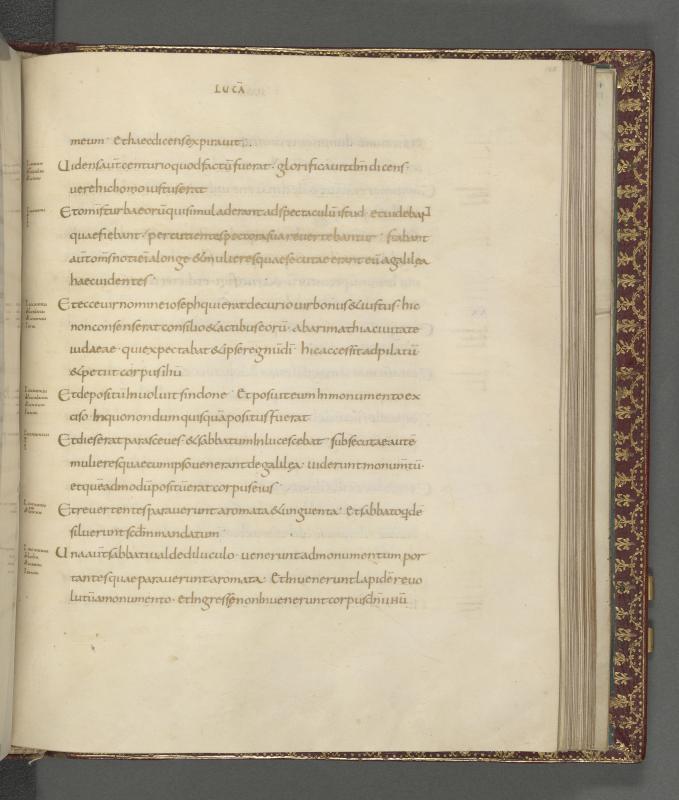 LUCĀ
meum· Ethaecdicensexpirauit·
Uidensaūtcenturioquodfactūfuerat· glorificauitdm̄dicens·
verehichomoiustuserat
Etomīsturbaeorūquisimuladerant·adspectaculūistud· etuidebant
quaefiebant· percutientespectorasuareuertebantur· Stabant
aūtomīsnotieiusalonge·&mulieresquaesecutaeeranteūagalilęa
haecuidentes·
Etecceuirnomineiosephquieratdecuriouirbonus&iustus·hic
nonconsenseratconsilio&actibuseorū·abarimathiaciuitate
iudaeae·quiexpectabat&ipseregnūdī· hicaccessitadpilatū
&petiitcorpusihū
Etdepositūinuoluitsindone· Etposuiteuminmonumentoex
ciso·Inquonondumquisquāpositusfuerat·
Etdieseratparasceues·&sabbatuminlucescebat· Subsecutaeautē
mulieresquaecumipsouenerantdegalilęa·uideruntmonumtū·
etquēadmodūpositūeratcorpuseius·
Etreuertentesparaueruntaromata&unguenta· Etsabbatoqīde
silueruntscdm̄mandatum·
Unaaūtsabbatiualdediluculo·ueneruntadmonumentumpor
tantesquaeparaueruntaromata· Etinueneruntlapidēreuo
lutūamonumento·Etingressęnoninueneruntcorpusdn̄iihū